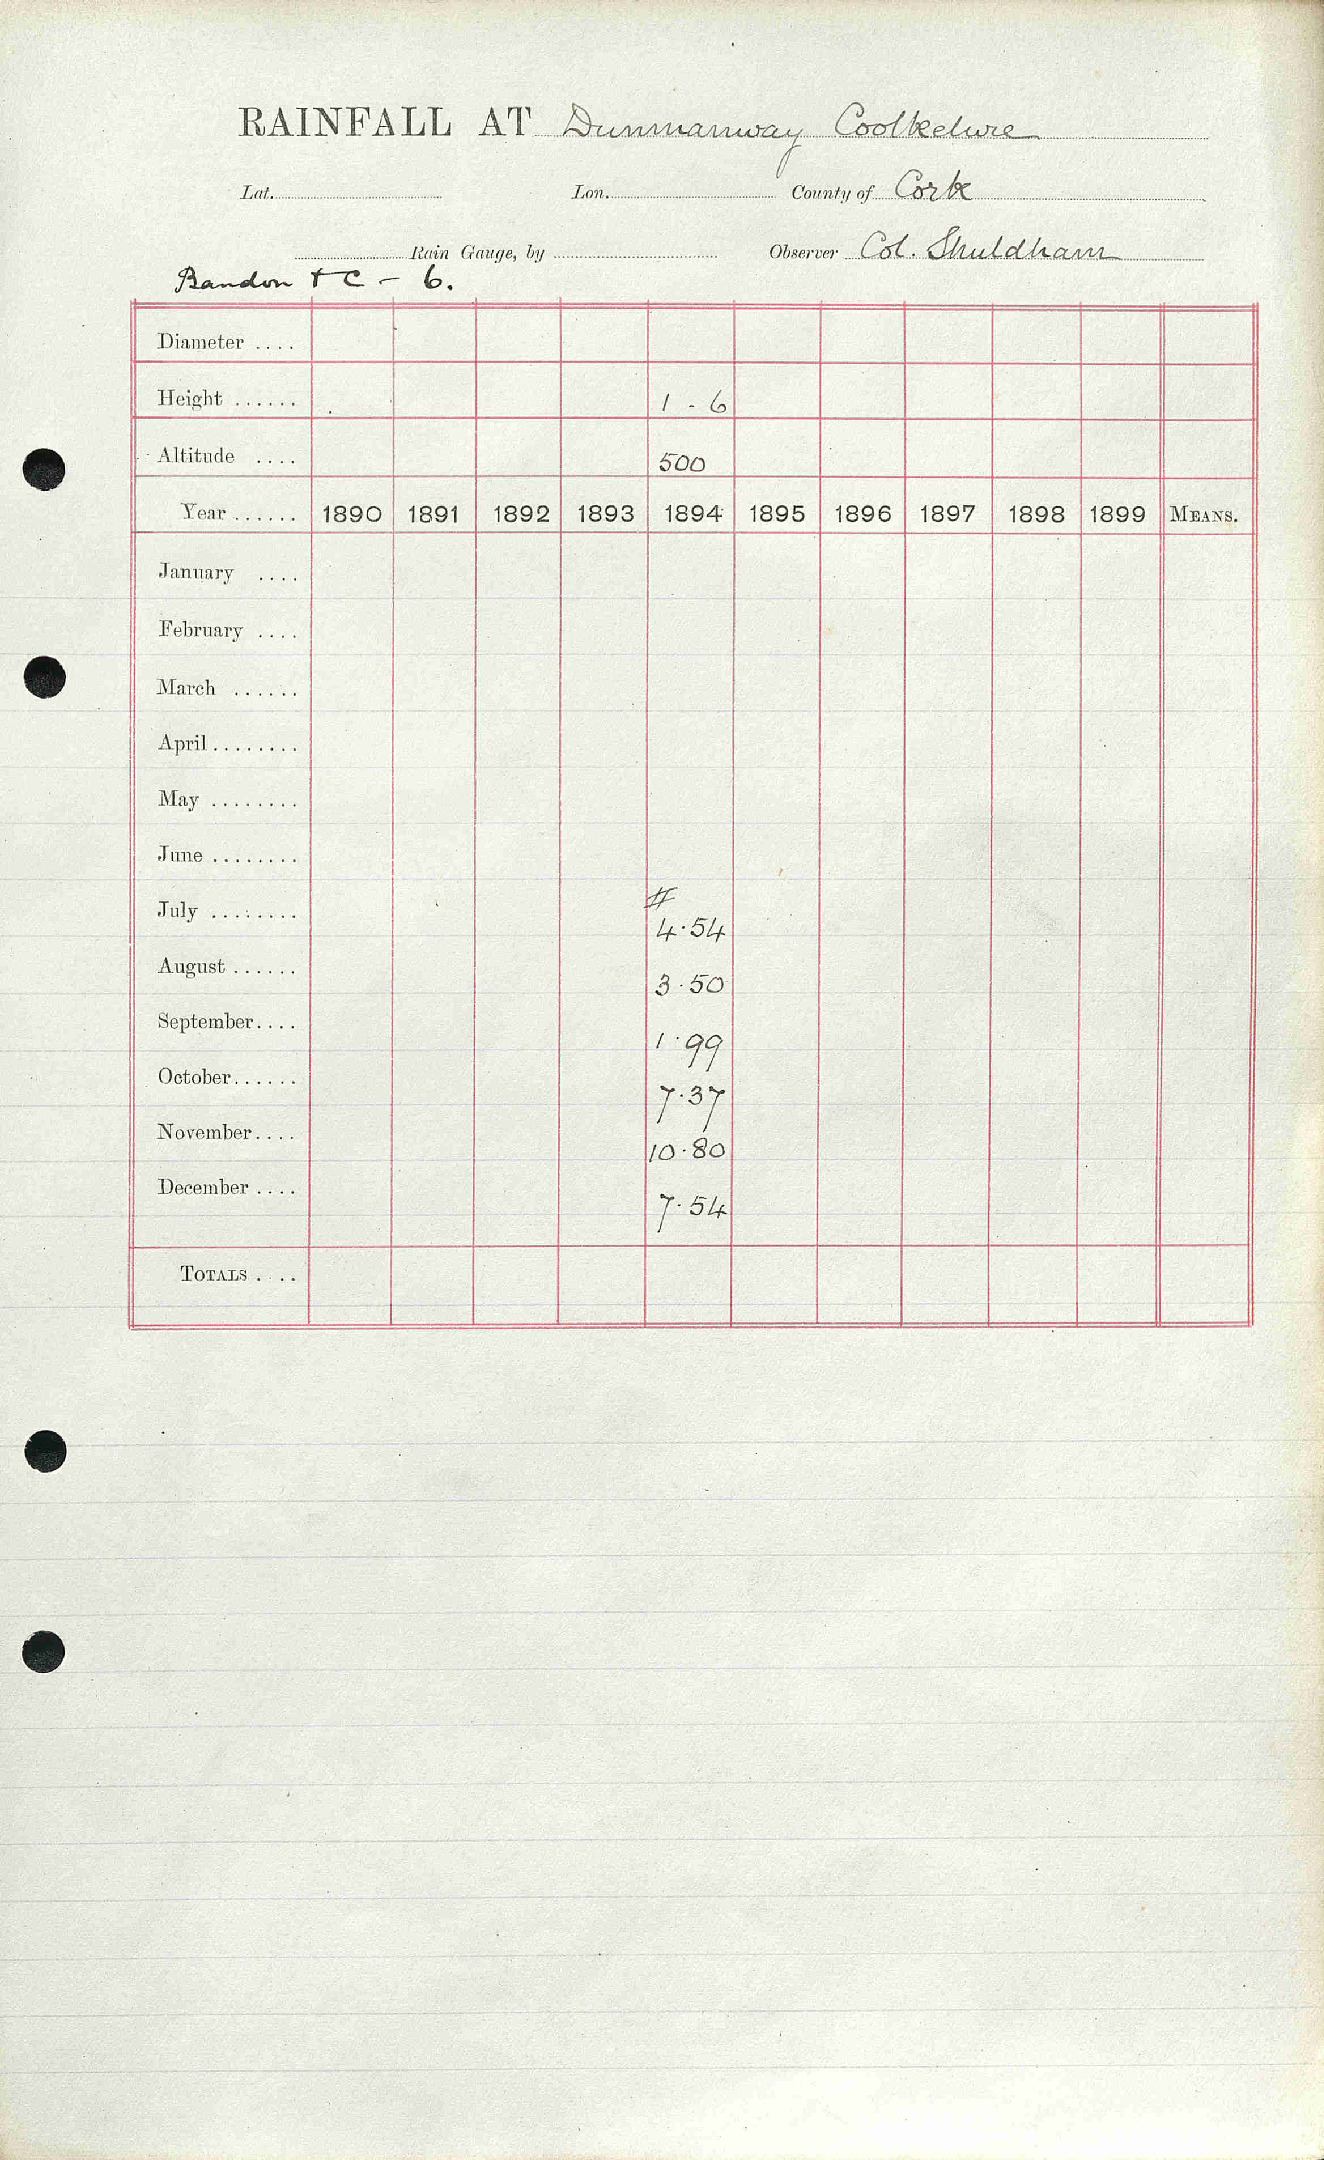 RAINFALL AT Dunmanway Coolkelure
Lat. Lon. County of Cork
Rain Gauge, by Observer Col. Shuldham
Bandon + C - 6.
Diameter ....
Height ...... 1 - 6
Altitude .... 500
Year ...... 1890 1891 1892 1893 1894 1895 1896 1897 1898 1899 MEANS.
January ....
February ....
March ......
April ........
May ........
June ........
#
July ........ 4.54
August ...... 3.50
September.... 1.99
October...... 7.37
November.... 10.80
December .... 7.54
TOTALS ....